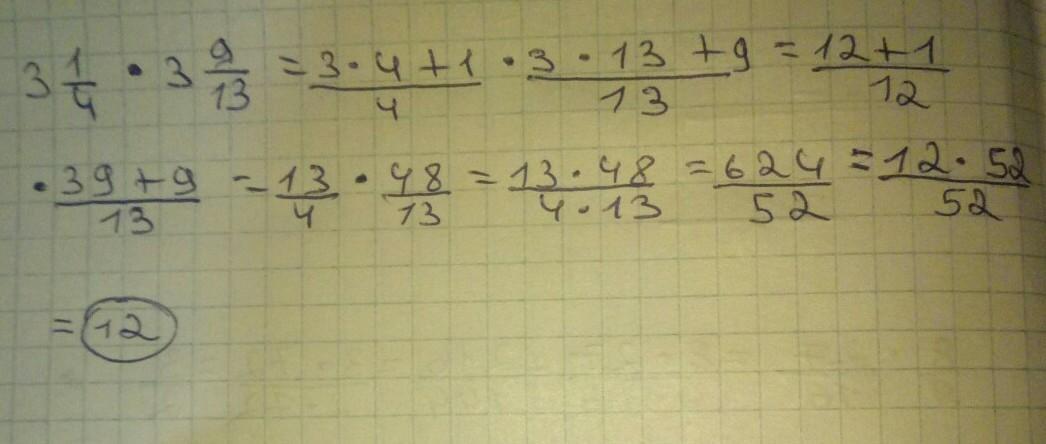 3 1/4 · 3 9/13 = (3·4+1)/4 · (3·13+9)/13 = (12+1)/12
· (39+9)/13 = 13/4 · 48/13 = (13·48)/(4·13) = 624/52 = (12·52)/52
= 12